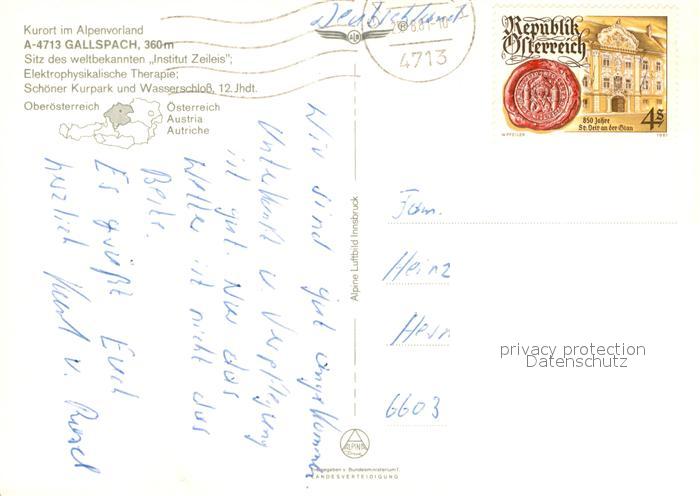 Kurort im Alpenvorland
A-4713 GALLSPACH, 360m
Sitz des weltbekannten „Institut Zeileis";
Elektrophysikalische Therapie;
Schöner Kurpark und Wasserschloß, 12.Jhdt.
Oberösterreich
Österreich
Austria
Autriche
4713
Republik
Österreich
850 Jahre
St. Veit an der Glan
4S
W.PFEILER
1981
Wir sind gut angekommen.
Unterkunft u. Verpflegung
ist gut. Nur das
Wetter ist nicht das
Beste.
Es grüßt Euch
herzlich u.
Alpine Luftbild Innsbruck
Fam.
Heinz
6603
privacy protection
Datenschutz
ALPINE
freigegeben v. Bundesministerium f.
LANDESVERTEIDIGUNG